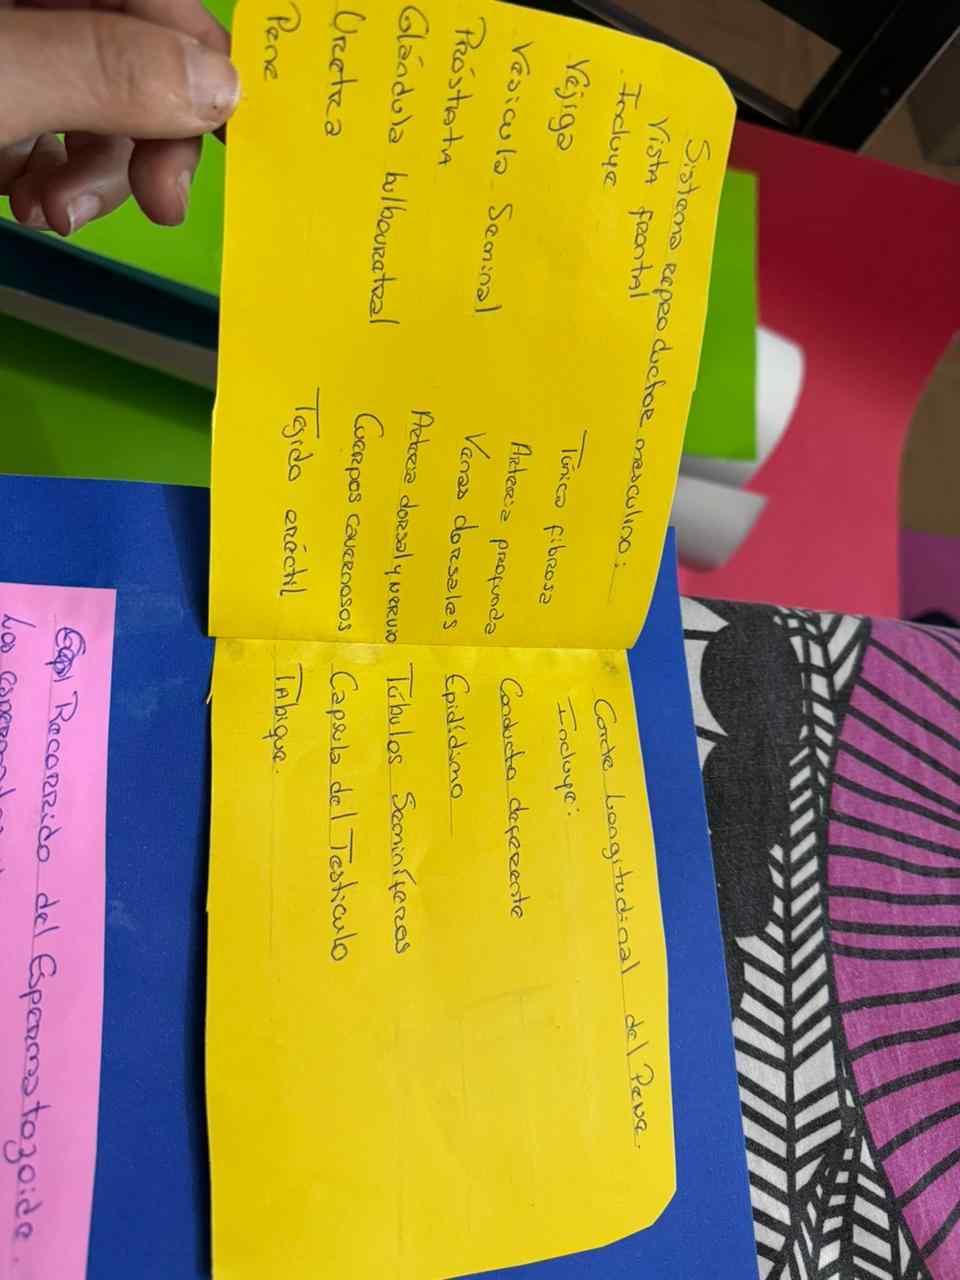 Sistema reproductor masculino:
Vista frontal
Incluye
Vejiga
Vesicula Seminal
Próstata
Glándula bulbouretral
Uretra
Pene
Túnica fibrosa
Arteria profunda
Venas dorsales
Arteria dorsal y nervio
Cuerpos cavernosos
Tejido eréctil
Corte Longitudinal del Pene.
Incluye:
Conducto deferente
Epidídimo
Túbulos Seminíferos
Capsula del Testiculo
Tabique.
Recorrido del Espermatozoide.
Los